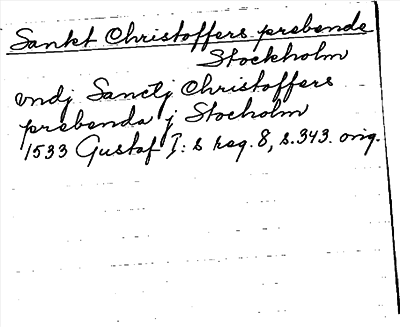 Sankt Christoffers prebende
Stockholm
vndj Sanctj Christoffers
prebenda j Stocholm
1533 Gustaf I:s reg. 8, s.343. orig.